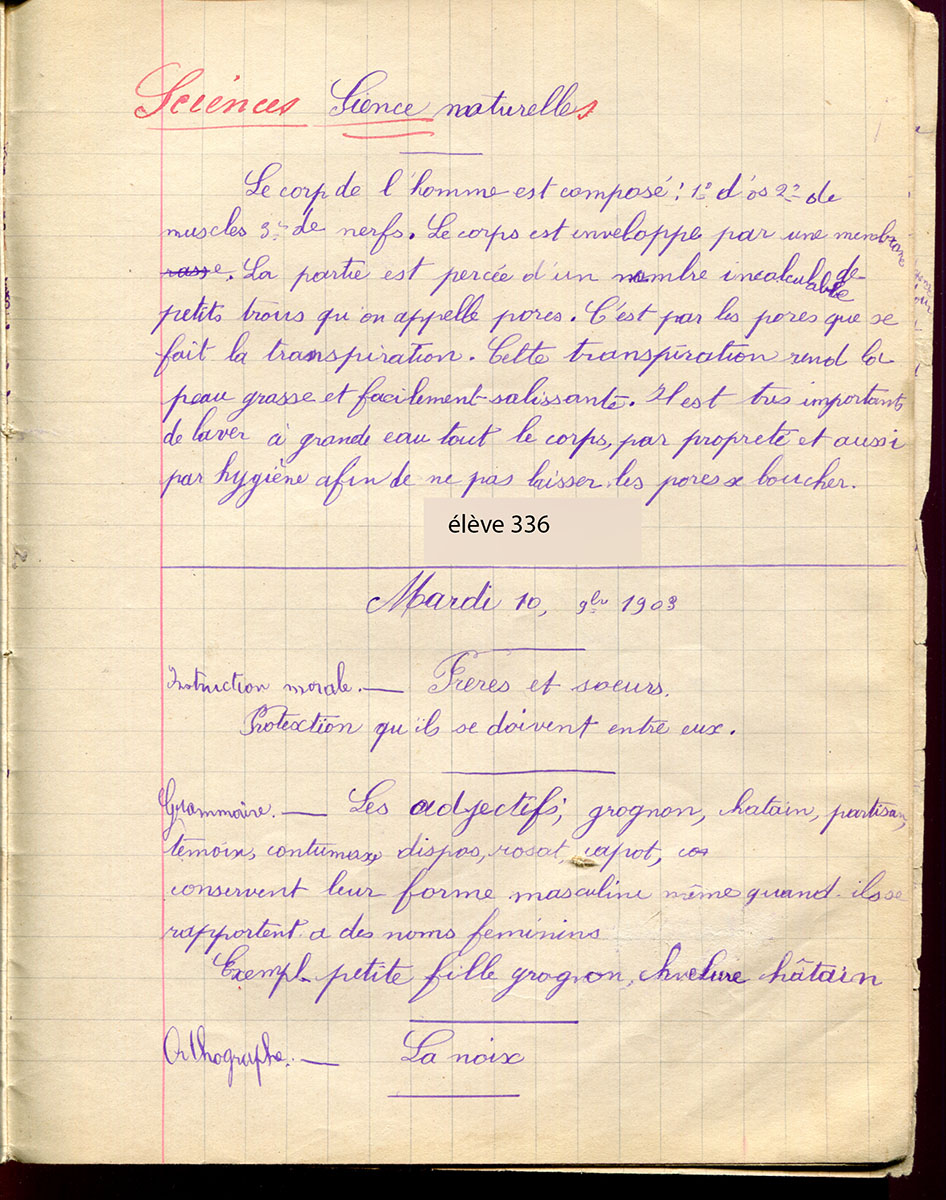 Sciences Sience naturelles
Le corp de l'homme est composé : 1º d'os 2º de
muscles 3º de nerfs. Le corps est inveloppe par une membrane
La partie est percée d'un nombre incalculable de
petits trous qu'on appelle pores. C'est par les pores que se
fait la transpiration. Cette transpiration rend la
peau grasse et facilement salissante. Il est tres important
de laver à grande eau tout le corps, par propreté et aussi
par hygiène afin de ne pas laisser les pores boucher.
élève 336
Mardi 10, 9bre 1903
Instruction morale. — Freres et soeurs.
Protextion qu'ils se doivent entre eux.
Grammaire. — Les adjectifs, grognon, hatain, partisan,
temoins, contumaxe dispos, rosat, capot,
conservent leur forme masculine même quand ils se
rapportent a des noms feminins
Exempl petite fille grognon, chvelure hâtain
Orthographe. — La noix